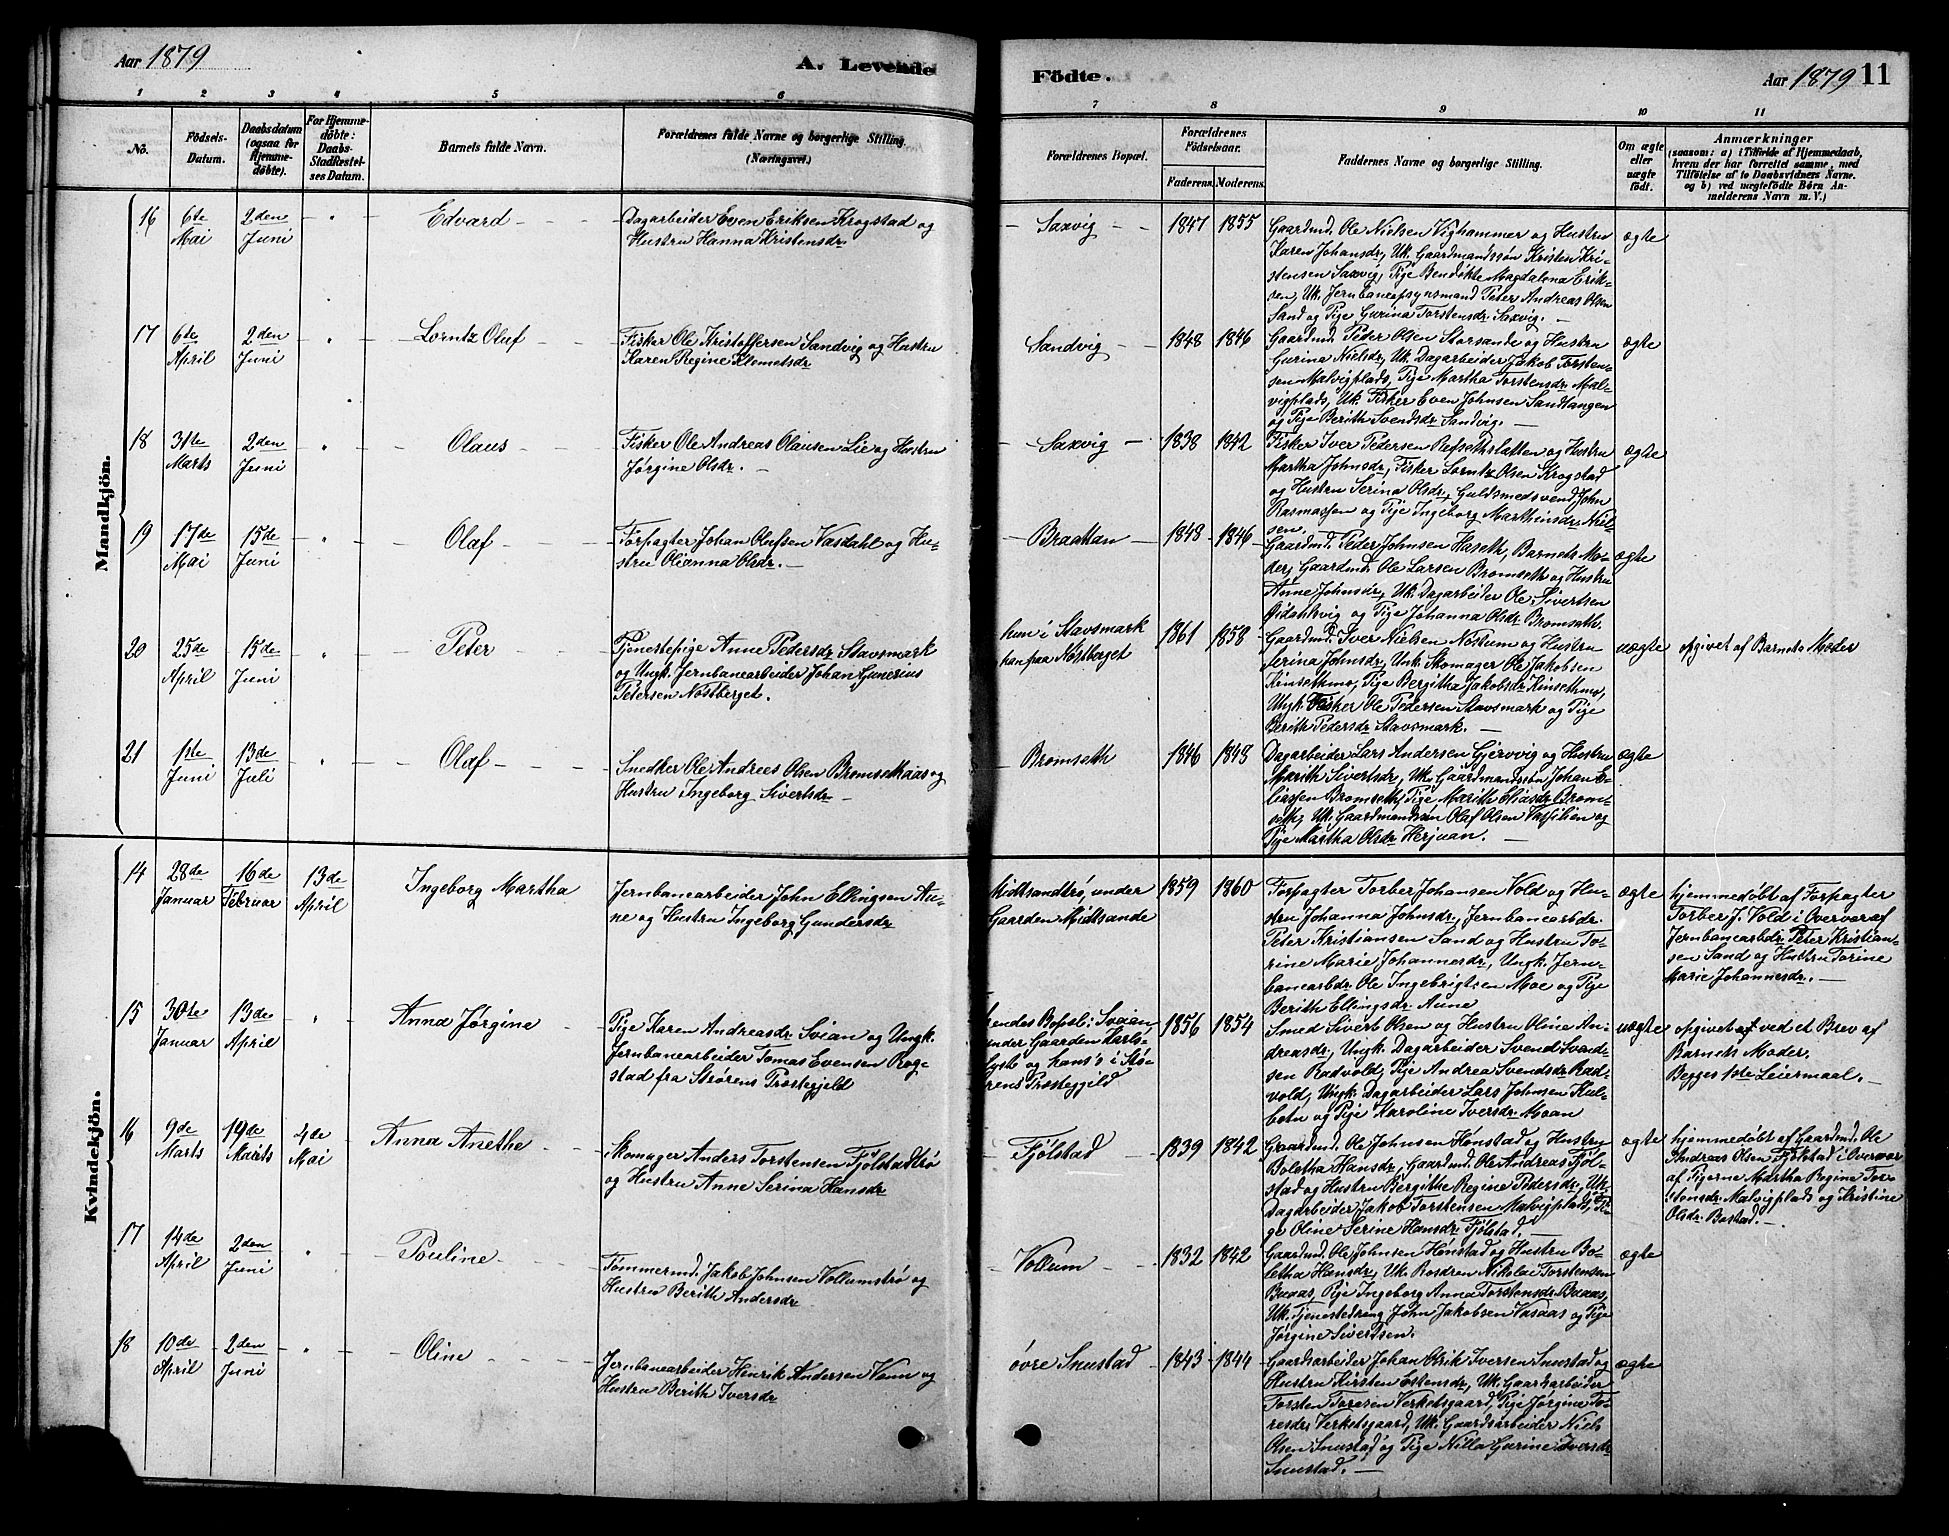 Aar 1879
A. Levende
Födte.
Aar 1879 11
1 2 3 4 5 6 7 8 9 10 11
No.
Födsels-
Datum.
Daabsdatum
(ogsaa for
Hjemme-
döbte).
For Hjemme-
döbte:
Daabs-
Stadfæstel-
ses Datum.
Barnets fulde Navn.
Forældrenes fulde Navne og borgerlige Stilling.
(Næringsvei.)
Forældrenes Bopæl.
Forældrenes
Födselsaar.
Faderens. Moderens.
Faddernes Navne og borgerlige Stilling.
Om ægte
eller
uægte
födt.
Anmærkninger
(saasom: a) i Tilfælde af Hjemmedaab,
hvem der har forrettet samme, med
Tilföielse af to Daabsvidners Navne.
og b) ved uægtefödte Börn An-
melderens Navn m. V.)
Mandkjön.
16
6te
Mai
2den
Juni
Edvard
Dagarbeider Even Eriksen Krogstad og
Hustru Hanna Kristensdr
Saxvig
1847 1855
Gaardmd. Ole Nielsen Vighammer og Hustru
Karen Johansdr, Uk. Gaardmandssøn Kristen Kri-
stensen Saxvig, Pige Bendikte Magdalena Erik-
sen, Uk. Jernbaneopsynsmand Peter Andreas Olsen
Sand og Pige Gurina Torstensdr Saxvig.
ægte
17
6te
April
2den
Juni
Lorntz Oluf
Fisker Ole Kristoffersen Sandvig og Hustru
Karen Regine Klemetsdr
Sandvig
1848 1846
Gaardmd. Peder Olsen Storsande og Hustru
Gurina Nielsdr, Uk. Dagarbeider Jakob Torsten-
sen Malvigplads, Pige Martha Torstensdr Mal-
vigplads, Uk. Fisker Even Johnsen Sandtangen
og Pige Berith Svendsdr Sandvig.
ægte
18
31te
Marts
2den
Juni
Olaus
Fisker Ole Andreas Olausen Lie og Hustru
Jørgine Olsdr.
Saxvig
1838 1842
Fisker Iver Pedersen Ræfsethslatten og Hustru
Martha Johnsdr, Fisker Lorntz Olsen Krogstad
og Hustru Serina Olsdr, Guldsmedsvend John
Rasmussen og Pige Ingeborg Marthinsdr Niel-
sen.
ægte
19
17de
Mai
15de
Juni
Olaf
Forpagter Johan Olufsen Vasdahl og Hu-
stru Olianna Olsdr.
Braattan
1848 1846
Gaardmd. Peder Johnsen Haseth, Barnets Mo-
der, Gaardmd. Ole Larsen Bromseth og Hustru
Anne Johnsdr, Uk. Dagarbeider Ole Sivertsen
og Pige Johanna Olsdr Bromseth.
ægte
20
25de
April
15de
Juni
Peter
Tjenestepige Anne Pedersdr Stavsmark
og Ungk. Jernbanearbeider Johan Gunerius
Petersen Nostberget.
hun i Stavsmark
han paa Nostberget
1861 1858
Gaardmd. Iver Nielsen Nostum og Hustru
Serina Johnsdr, Unk. Skomager Ole Jakobsen
Kinsethmo, Pige Bergitha Jakobsdr Kinsethmo,
Ungk. Fisker Ole Pedersen Stavsmark og Pige
Berith Pedersdr Stavsmark.
uægte
opgivet af Barnets Moder
21
1ste
Juni
13de
Juli
Olaf
Snedker Ole Andreas Olsen Bromsethaas og
Hustru Ingeborg Sivertsdr
Bromseth
1846 1848
Dagarbeider Lars Andersen Gjervvig og Hustru
Marith Sivertsdr, Uk. Gaardmandssøn Johan E-
liassen Bromseth, Pige Marith Eliasdr Brom-
seth, Uk. Gaardmandssøn Olaf Olsen Vasslien og
Pige Martha Olsdr Herjuan.
ægte
Kvindekjön.
14
28de
Januar
16de
Februar
13de
April
Ingeborg Martha
Jernbanearbeider John Ellingsen Au-
ne og Hustru Ingeborg Gundersdr
Midtsandtrø, under
Gaarden Midtsande
1859 1860
Forpagter Torber Johansen Vold og Hu-
stru Johanna Johnsdr, Jernbanearbdr.
Peter Kristiansen Sand og Hustru To-
rine Marie Johannesdr, Ungk. Jern-
banearbdr. Ole Ingebrigtsen Moe og Pige
Berith Ellingsdr Aune
ægte
hjemmedøbt af Forpagter
Torber J. Vold i Overvær af
Jernbanearbdr Peter Kristian-
sen Sand og Hustru Torine
Marie Johannesdr.
15
30te
Januar
13de
April
Anna Jørgine
Pige Karen Andreasdr Svian og Ungk.
Jernbanearbeider Tomas Evensen Rog-
stad fra Størens Præstegjeld
hendes Bopsl. i Svian,
under Gaarden Karls-
lyst og hans's i Stø-
rens Præstegjeld
1856 1854
Smed Sivert Olsen og Hustru Oline An-
dreasdr, Ungk. Dagarbeider Svend Svend-
sen Radvold, Pige Andrea Svendsdr Rad-
vold, Ungk. Dagarbeider Lars Johnsen Kul-
botn og Pige Karoline Iversdr Moan
uægte
opgivet af ved et Brev af
Barnets Moder.
Begges 1ste Leiermaal.
16
9de
Marts
19de
Marts
4de
Mai
Anna Anethe
Skomager Anders Torstensen Fjølstadtrø
og Hustru Anne Serina Hansdr
Fjølstad
1839 1842
Gaardmd. Ole Johnsen Hønstad og Hustru
Boletha Hansdr, Gaardmd. Ole Andreas Fjøl-
stad og Hustru Bergithe Regine Pedersdr, Uk.
Dagarbeider Jakob Torstensen Malvigplads, Pi-
ge Oline Serine Hansdr Fjølstad.
ægte
hjemmedøbt af Gaardmd. Ole
Andreas Olsen Fjølstad i Overvær
af Pigerne Martha Regine Tor-
stensdr Malvigplads og Kristine
Olsdr Bostad.
17
14de
April
2den
Juni
Pouline
Tømmermd. Jakob Johnsen Vollumstrø og
Hustru Berith Andersdr
Vollum
1832 1842
Gaardmd. Ole Johnsen Hønstad og Hustru Bo-
letha Hansdr, Uk. Nikolai Torstensen
Baaas, Pige Ingeborg Anna Torstensdr Baaas,
Uk. Tjenestedreng John Jakobsen Vasaas og Pige
Jørgine Sivertsen.
ægte
18
10de
April
2den
Juni
Oline
Jernbanearbeider Henrik Andersen Venn og
Hustru Berith Iversdr
øvre Snustad
1843 1844
Gaardsarbeider Johan Olrik Iversen Snustad og
Hustru Kirsten Estensdr, Uk. Gaardsarbeider
Torsten Toresen Verketsgaard, Pige Jørgina To-
resdr Verketsgaard, Uk. Gaardsarbeider Niels
Olsen Snustad og Pige Nilla Gurine Iversdr
Snustad.
ægte